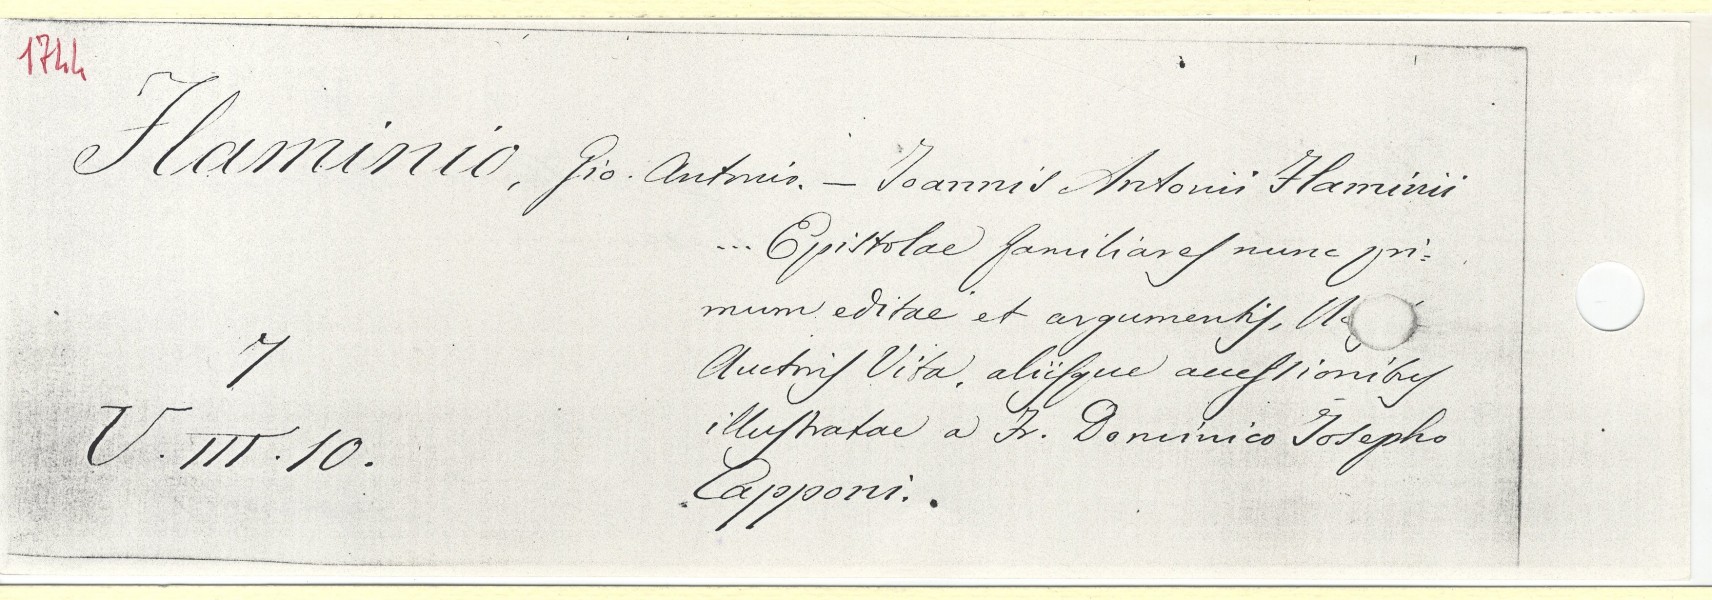 1744
Flaminio, Gio. Antonio. — Joannis Antonii Flaminii
... Epistolae familiares nunc pri=
mum editae et argumentis,
Auctoris Vita, aliisque accessionibus
illustratae a Fr. Dominico Josepho
Capponi.
7
V. III. 10.